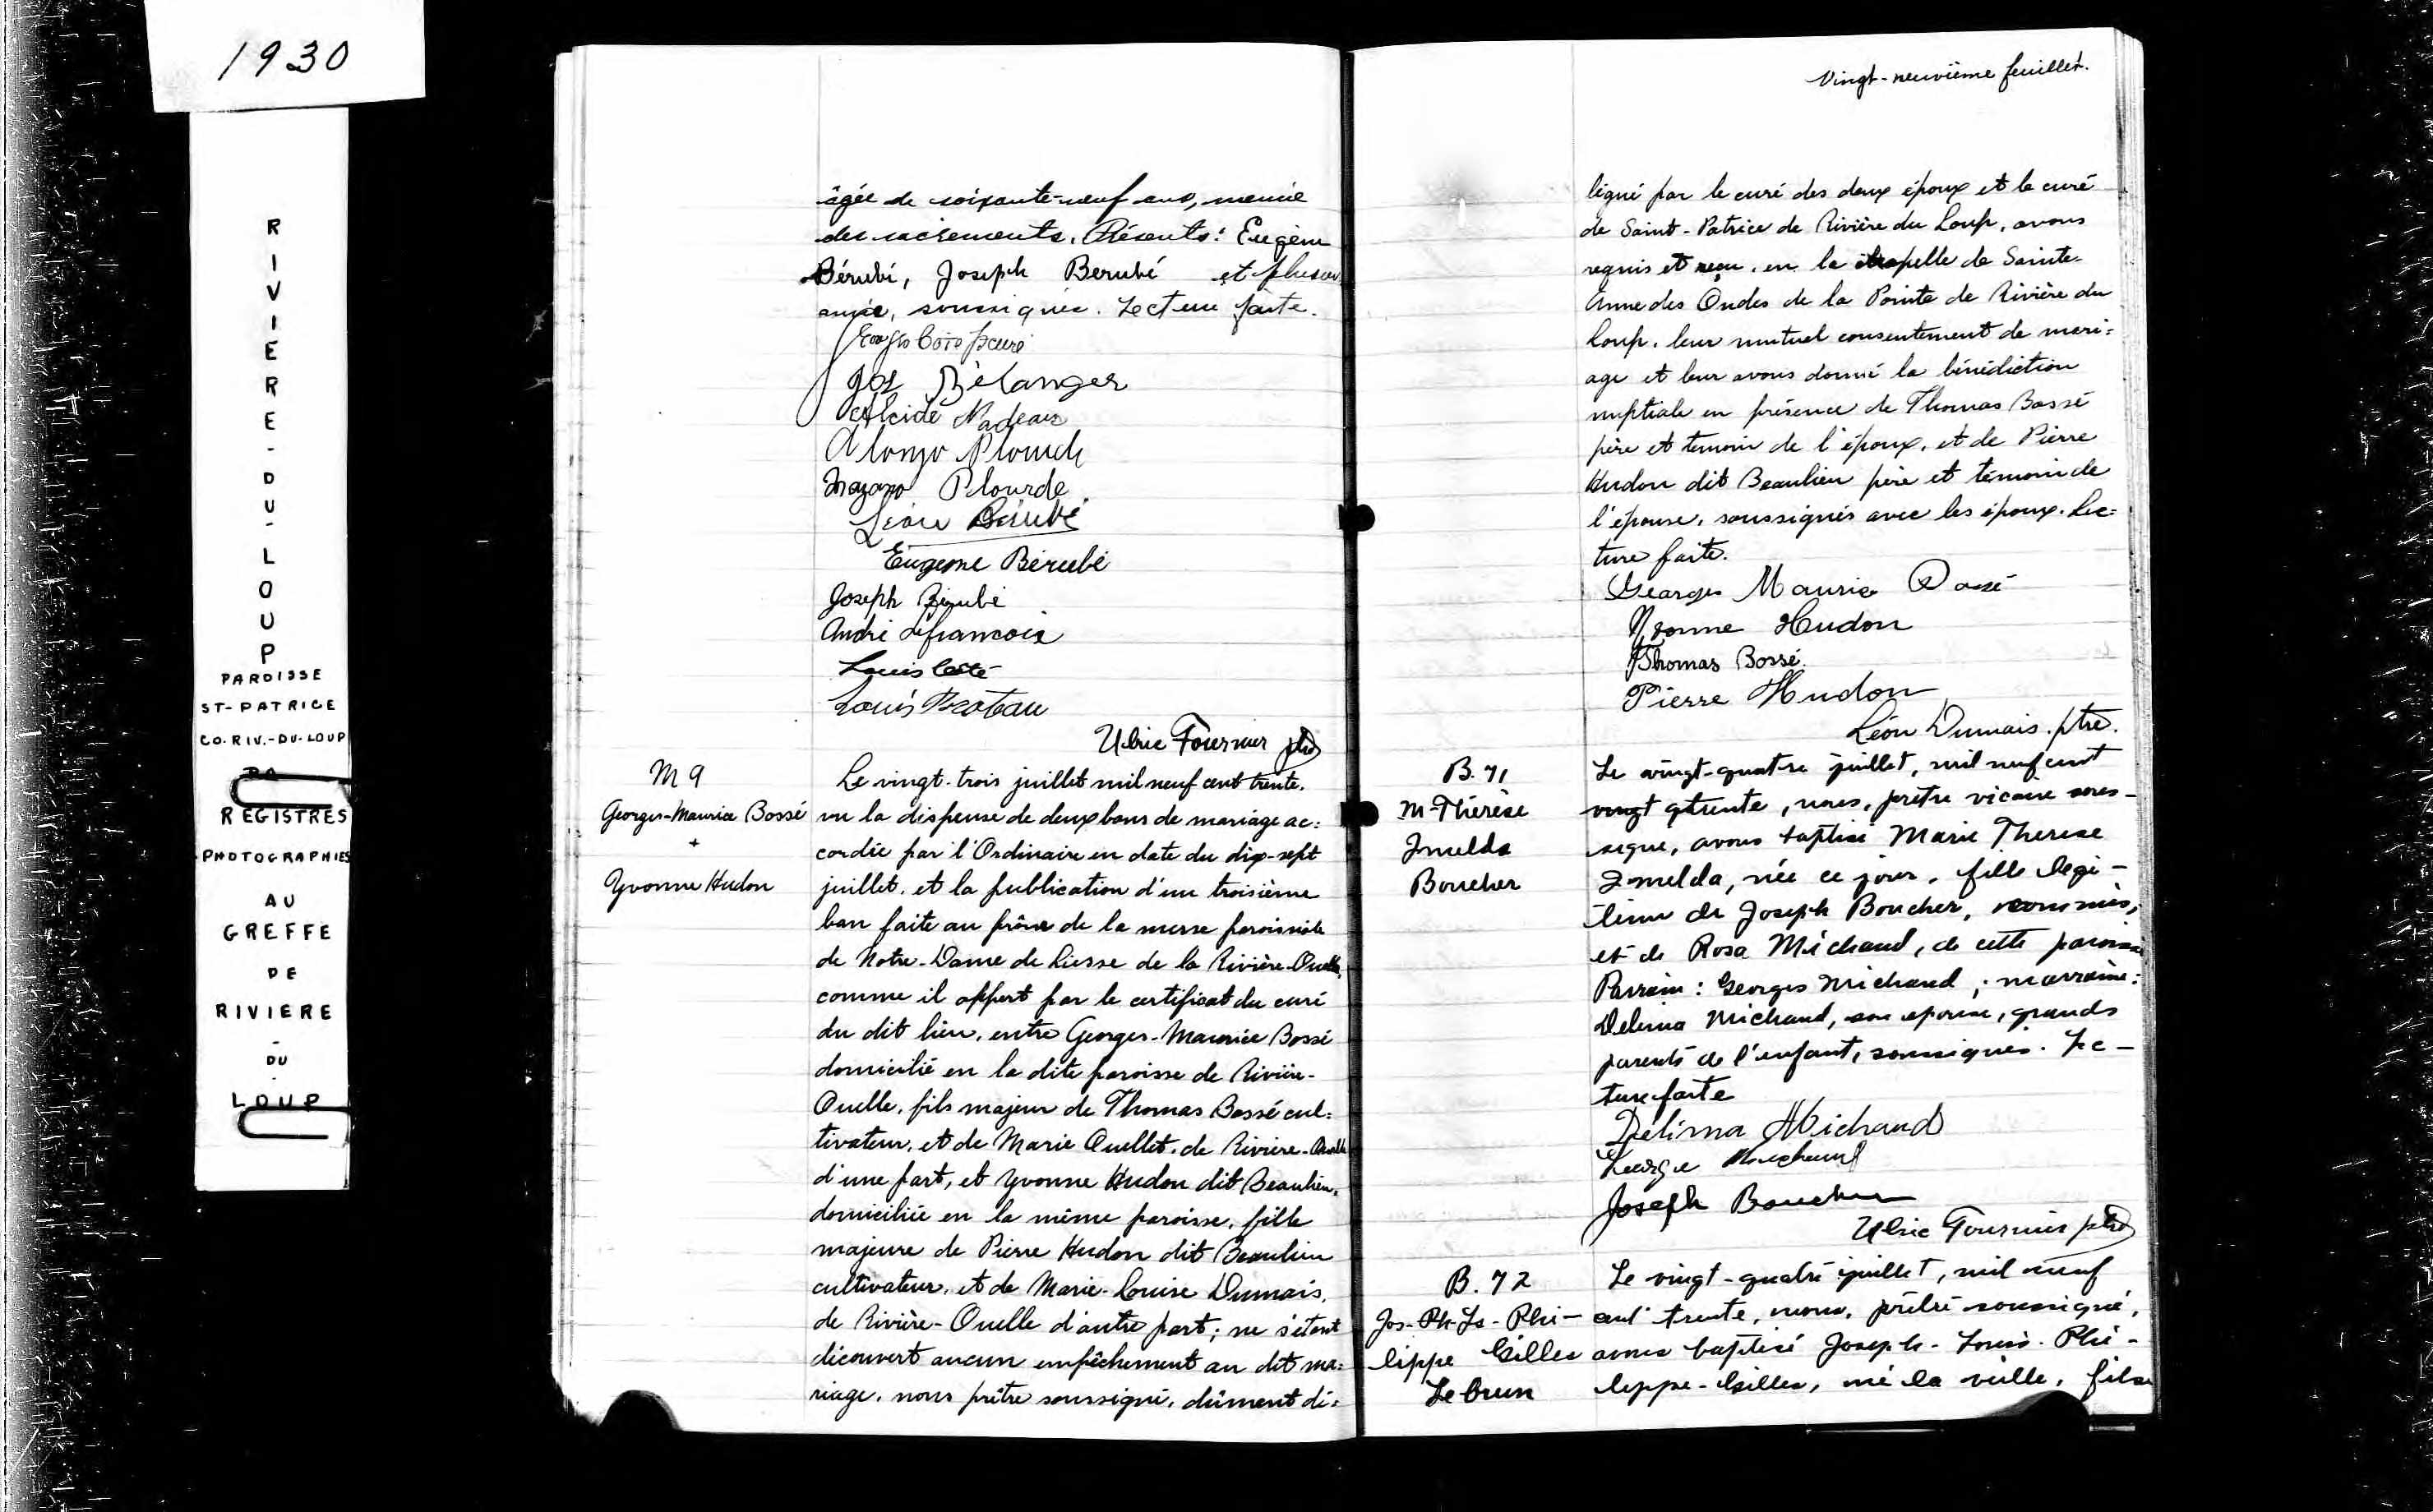 1930
RIVIERE-DU-LOUP
PAROISSE
ST-PATRICE
CO. RIV.-DU-LOUP
REGISTRES
PHOTOGRAPHIES
AU
GREFFE
DE
RIVIERE
-
DU
-
LOUP
âgée de soixante-neuf ans, munie
des sacrements. Présents: Eugène
Bérubé, Joseph Berubé et plusieurs
amis, soussignés. Lecture faite.
Jos Bélanger
Alcide Nadeau
Alonzo Plourde
Plourde
Léon Bérubé
Eugene Bérubé
Joseph Bérubé
André Lefrancois
Louis Coté
Louis
Ulric Fournier ptre
M 9
Georges-Maurice Bossé
+
Yvonne Hudon
Le vingt-trois juillet mil neuf cent trente,
vu la dispense de deux bans de mariage ac=
cordée par l'Ordinaire en date du dix-sept
juillet, et la publication d'un troisième
ban faite au prône de la messe paroissiale
de Notre-Dame de Liesse de la Rivière-Ouelle,
comme il appert par le certificat du curé
du dit lieu, entre Georges-Maurice Bossé
domicilié en la dite paroisse de Rivière-
Ouelle, fils majeur de Thomas Bossé cul=
tivateur, et de Marie Ouellet, de Rivière-Ouelle
d'une part, et Yvonne Hudon dit Beaulieu,
domiciliée en la même paroisse, fille
majeure de Pierre Hudon dit Beaulieu
cultivateur, et de Marie-Louise Dumais,
de Rivière-Ouelle d'autre part; ne s'étant
découvert aucun empêchement au dit ma=
riage, nous prêtre soussigné, dûment dé=
Vingt-neuvième feuillet.
ligué par le curé des deux époux et le curé
de Saint-Patrice de Rivière du Loup, avons
requis et reçu, en la chapelle de Sainte-
Anne des Ondes de la Pointe de Rivière du
Loup, leur mutuel consentement de mari=
age et leur avons donné la bénédiction
nuptiale en présence de Thomas Bossé
père et temoin de l'époux, et de Pierre
Hudon dit Beaulieu père et témoin de
l'épouse, soussignés avec les époux. Lec=
ture faite.
Georges Maurice Bossé
Yvonne Hudon
Thomas Bossé.
Pierre Hudon
Léon Dumais. ptre.
B. 71
M-Thérèse
Imelda
Boucher
Le vingt-quatre juillet, mil neuf cent
vingt trente, nous, prêtre vicaire sous-
signé, avons baptisé Marie Therese
Imelda, née ce jour, fille légi-
time de Joseph Boucher, commis,
et de Rosa Michaud, de cette paroisse
Parrain: Georges Michaud; marraine:
Delima Michaud, son epouse, grands
parents de l'enfant, soussignés. Lec-
ture faite
Delima Michaud
George Michaud
Joseph Boucher
Ulric Fournier ptre
B. 72
Jos-Ph-Ls-Phi-
lippe Gilles
Lebrun
Le vingt-quatre juillet, mil neuf
cent trente, nous, prêtre soussigné,
avons baptisé Joseph-Louis-Phi-
lippe-Gilles, né la veille, fils